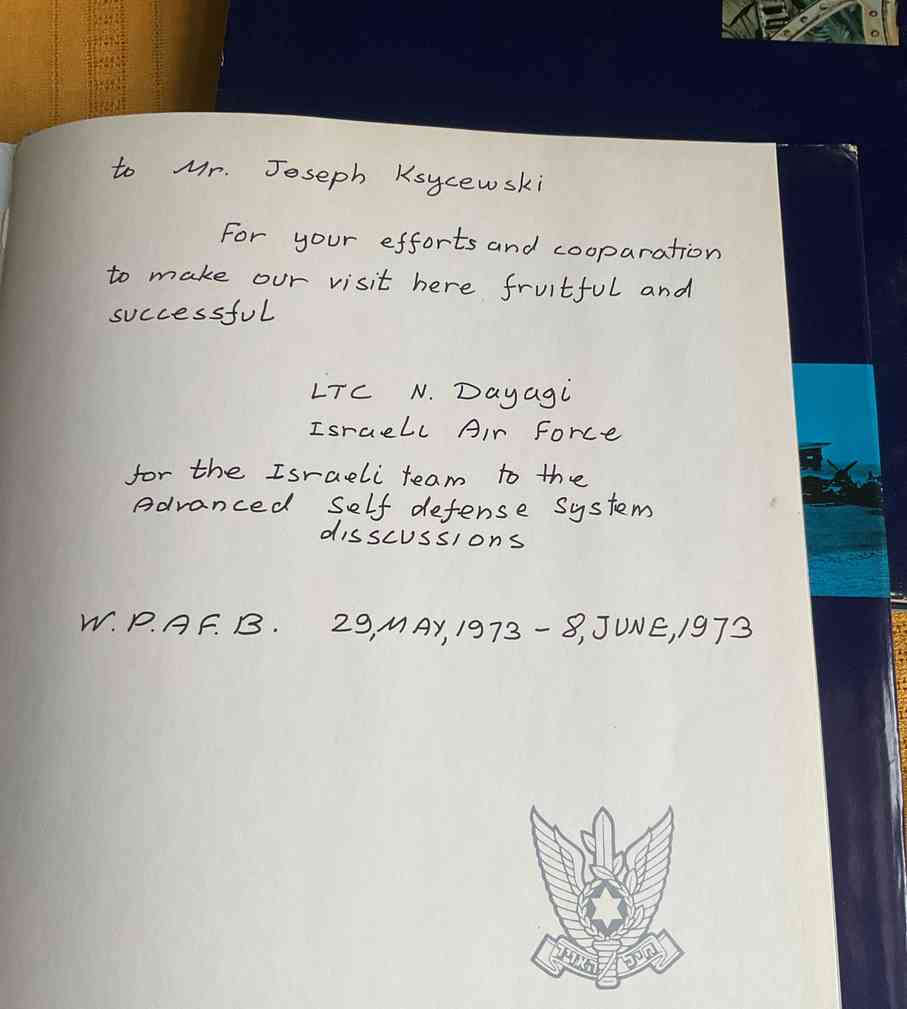 to Mr. Joseph Ksycewski
For your efforts and cooparation
to make our visit here fruitful and
successful
LTC N. Dayagi
Israeli Air Force
for the Israeli team to the
Advanced Self defense System
disscussions
W.P.A.F.B. 29,MAY,1973 - 8,JUNE,1973
חיל האויר